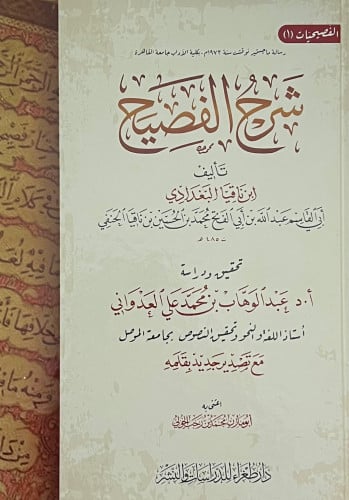 الفصيحيات (١)
رسالة ماجستير نوقشت سنة ١٩٧٣م، بكلية الآداب جامعة القاهرة
شرح الفصيح
تأليف
ابن ناقيا البغدادي
أبي القاسم عبد الله بن أبي الفتح محمد بن الحسين بن ناقيا الحنفي
ت ٤٨٥ هـ
تحقيق ودراسة
أ.د عبد الوهاب بن محمد علي العدواني
أستاذ اللغة والنحو وتحقيق النصوص بجامعة الموصل
مع تصدير جديد بقلمه
اعتنى به
أبو مازن محمد بن رجب الخولي
دار طغراء للدراسات والنشر